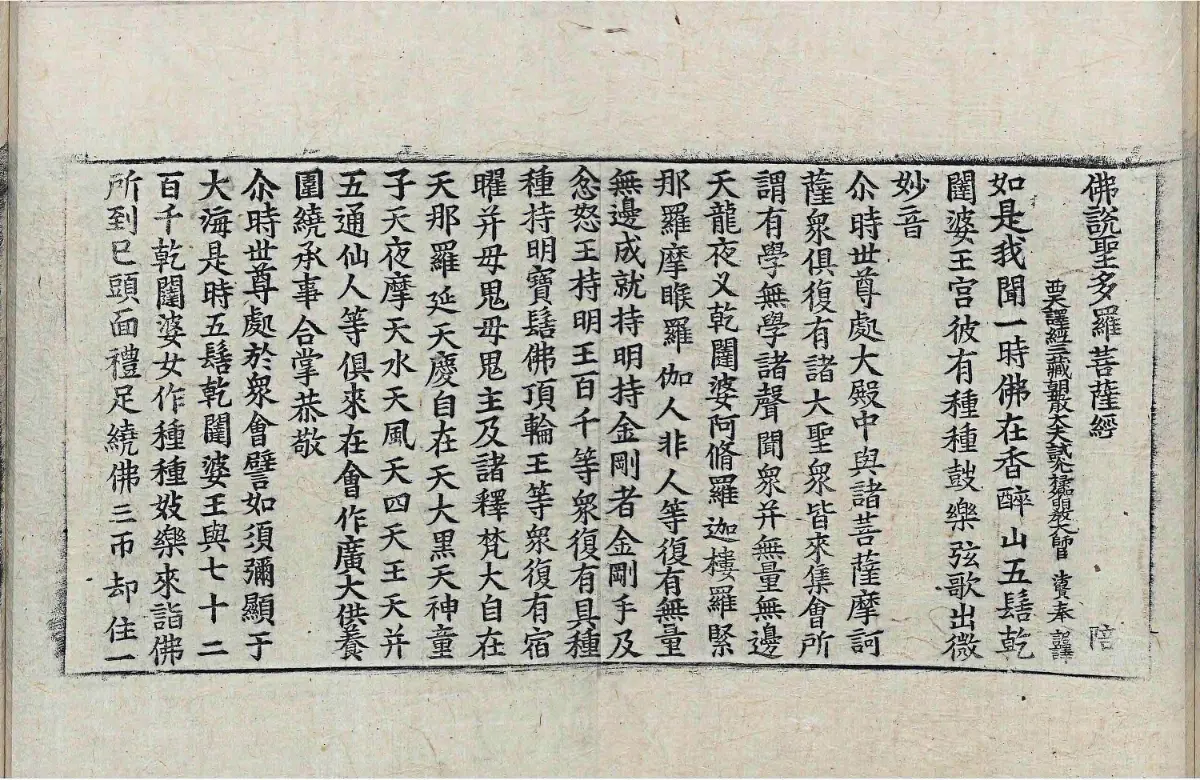 佛說聖多羅菩薩經 陪
西天譯經三藏朝散大夫試光祿卿明教大師 法賢奉 詔譯
如是我聞一時佛在香醉山五髻乾
闥婆王宮彼有種種鼓樂弦歌出微
妙音
尒時世尊處大殿中與諸菩薩摩訶
薩衆俱復有諸大聖衆皆來集會所
謂有學無學諸聲聞衆并無量無邊
天龍夜叉乾闥婆阿脩羅迦樓羅緊
那羅摩睺羅伽人非人等復有無量
無邊成就持明持金剛者金剛手及
忿怒王持明王百千等衆復有具種
種持明寶髻佛頂輪王等衆復有宿
曜并母鬼母鬼主及諸釋梵大自在
天那羅延天慶自在天大黑天神童
子天夜摩天水天風天四天王天并
五通仙人等俱來在會作廣大供養
圍繞承事合掌恭敬
尒時世尊處於衆會譬如須彌顯于
大海是時五髻乾闥婆王與七十二
百千乾闥婆女作種種妓樂來詣佛
所到已頭面禮足繞佛三帀却住一